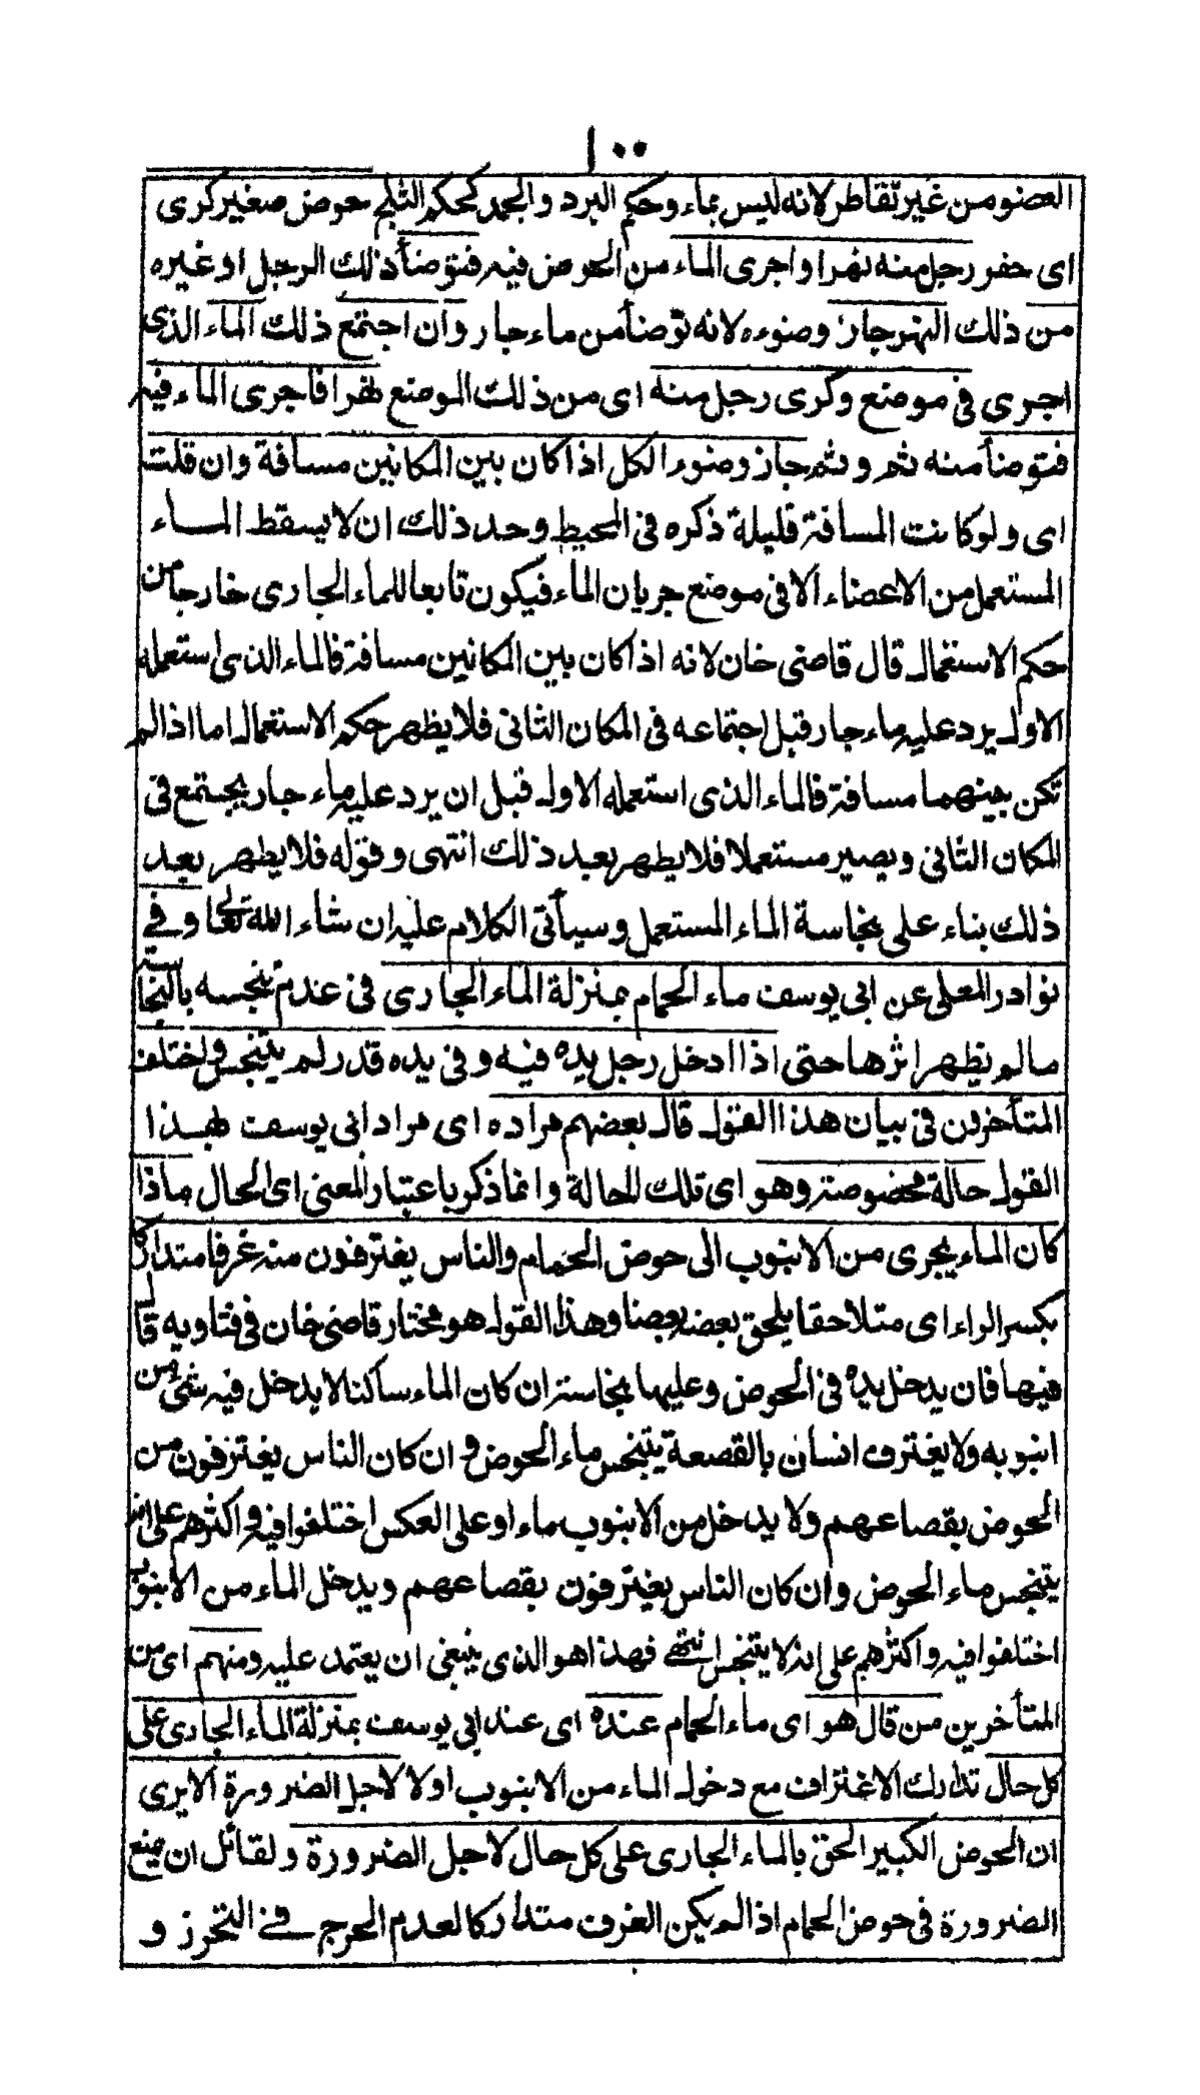 ١٠٠
العضو من غير تقاطر لانه ليس بماء وحكم البرد والجمد كحكم الثلج حوض صغير كرى
اى حفر رجل منه نهرا واجرى الماء من الحوض فيه فتوضأ ذلك الرجل او غيره
من ذلك النهر جاز وضوءه لانه توضأ من ماء جار وان اجتمع ذلك الماء الذى
اجرى فى موضع وكرى رجل منه اى من ذلك الموضع نهرا فاجرى الماء فيه
فتوضأ منه ثم وثم جاز وضوء الكل اذا كان بين المكانين مسافة وان قلت
اى ولو كانت المسافة قليلة ذكره فى المحيط وحد ذلك ان لا يسقط الماء
المستعمل من الاعضاء الا فى موضع جريان الماء فيكون تابعا للماء الجارى خارجا من
حكم الاستعمال قال قاضى خان لانه اذا كان بين المكانين مسافة فالماء الذى استعمله
الاول يرد عليه ماء جار قبل اجتماعه فى المكان الثانى فلا يظهر حكم الاستعمال اما اذا لم
تكن بينهما مسافة فالماء الذى استعمله الاول قبل ان يرد عليه ماء جار يجتمع فى
المكان الثانى ويصير مستعملا فلا يطهر بعد ذلك انتهى وقوله فلا يطهر بعد
ذلك بناء على نجاسة الماء المستعمل وسيأتى الكلام عليه ان شاء الله تعالى وفى
نوادر المعلى عن ابى يوسف ماء الحمام بمنزلة الماء الجارى فى عدم تنجسه بالنجاسة
ما لم يظهر اثرها حتى اذا ادخل رجل يده فيه وفى يده قذر لم يتنجس واختلف
المتأخرون فى بيان هذا القول قال بعضهم مراده اى مراد ابى يوسف بهذا
القول حالة مخصوصة وهو اى تلك الحالة وانما ذكر باعتبار المعنى اى الحال ماذا
كان الماء يجرى من الانبوب الى حوض الحمام والناس يغترفون منه غرفا متداركا
بكسر الراء اى متلاحقا يلحق بعضه بعضا وهذا القول هو مختار قاضى خان فى فتاويه قال
فيها فان يدخل يده فى الحوض وعليها نجاسة ان كان الماء ساكنا لا يدخل فيه شئ من
انبوبه ولا يغترف انسان بالقصعة يتنجس ماء الحوض و ان كان الناس يغترفون من
الحوض بقصاعهم ولا يدخل من الانبوب ماء او على العكس اختلفوا فيه واكثرهم على انه
يتنجس ماء الحوض وان كان الناس يغترفون بقصاعهم ويدخل الماء من الانبوب
اختلفوا فيه واكثرهم على انه لا يتنجس انتهى فهذا هو الذى ينبغى ان يعتمد عليه ومنهم اى من
المتأخرين من قال هو اى ماء الحمام عنده اى عند ابى يوسف بمنزلة الماء الجارى على
كل حال تدارك الاغتراف مع دخول الماء من الانبوب اولا لاجل الضرورة الا يرى
ان الحوض الكبير الحق بالماء الجارى على كل حال لاجل الضرورة ولقائل ان يمنع
الضرورة فى حوض الحمام اذا لم يكن الغرف متداركا لعدم الحرج فى التحرز و